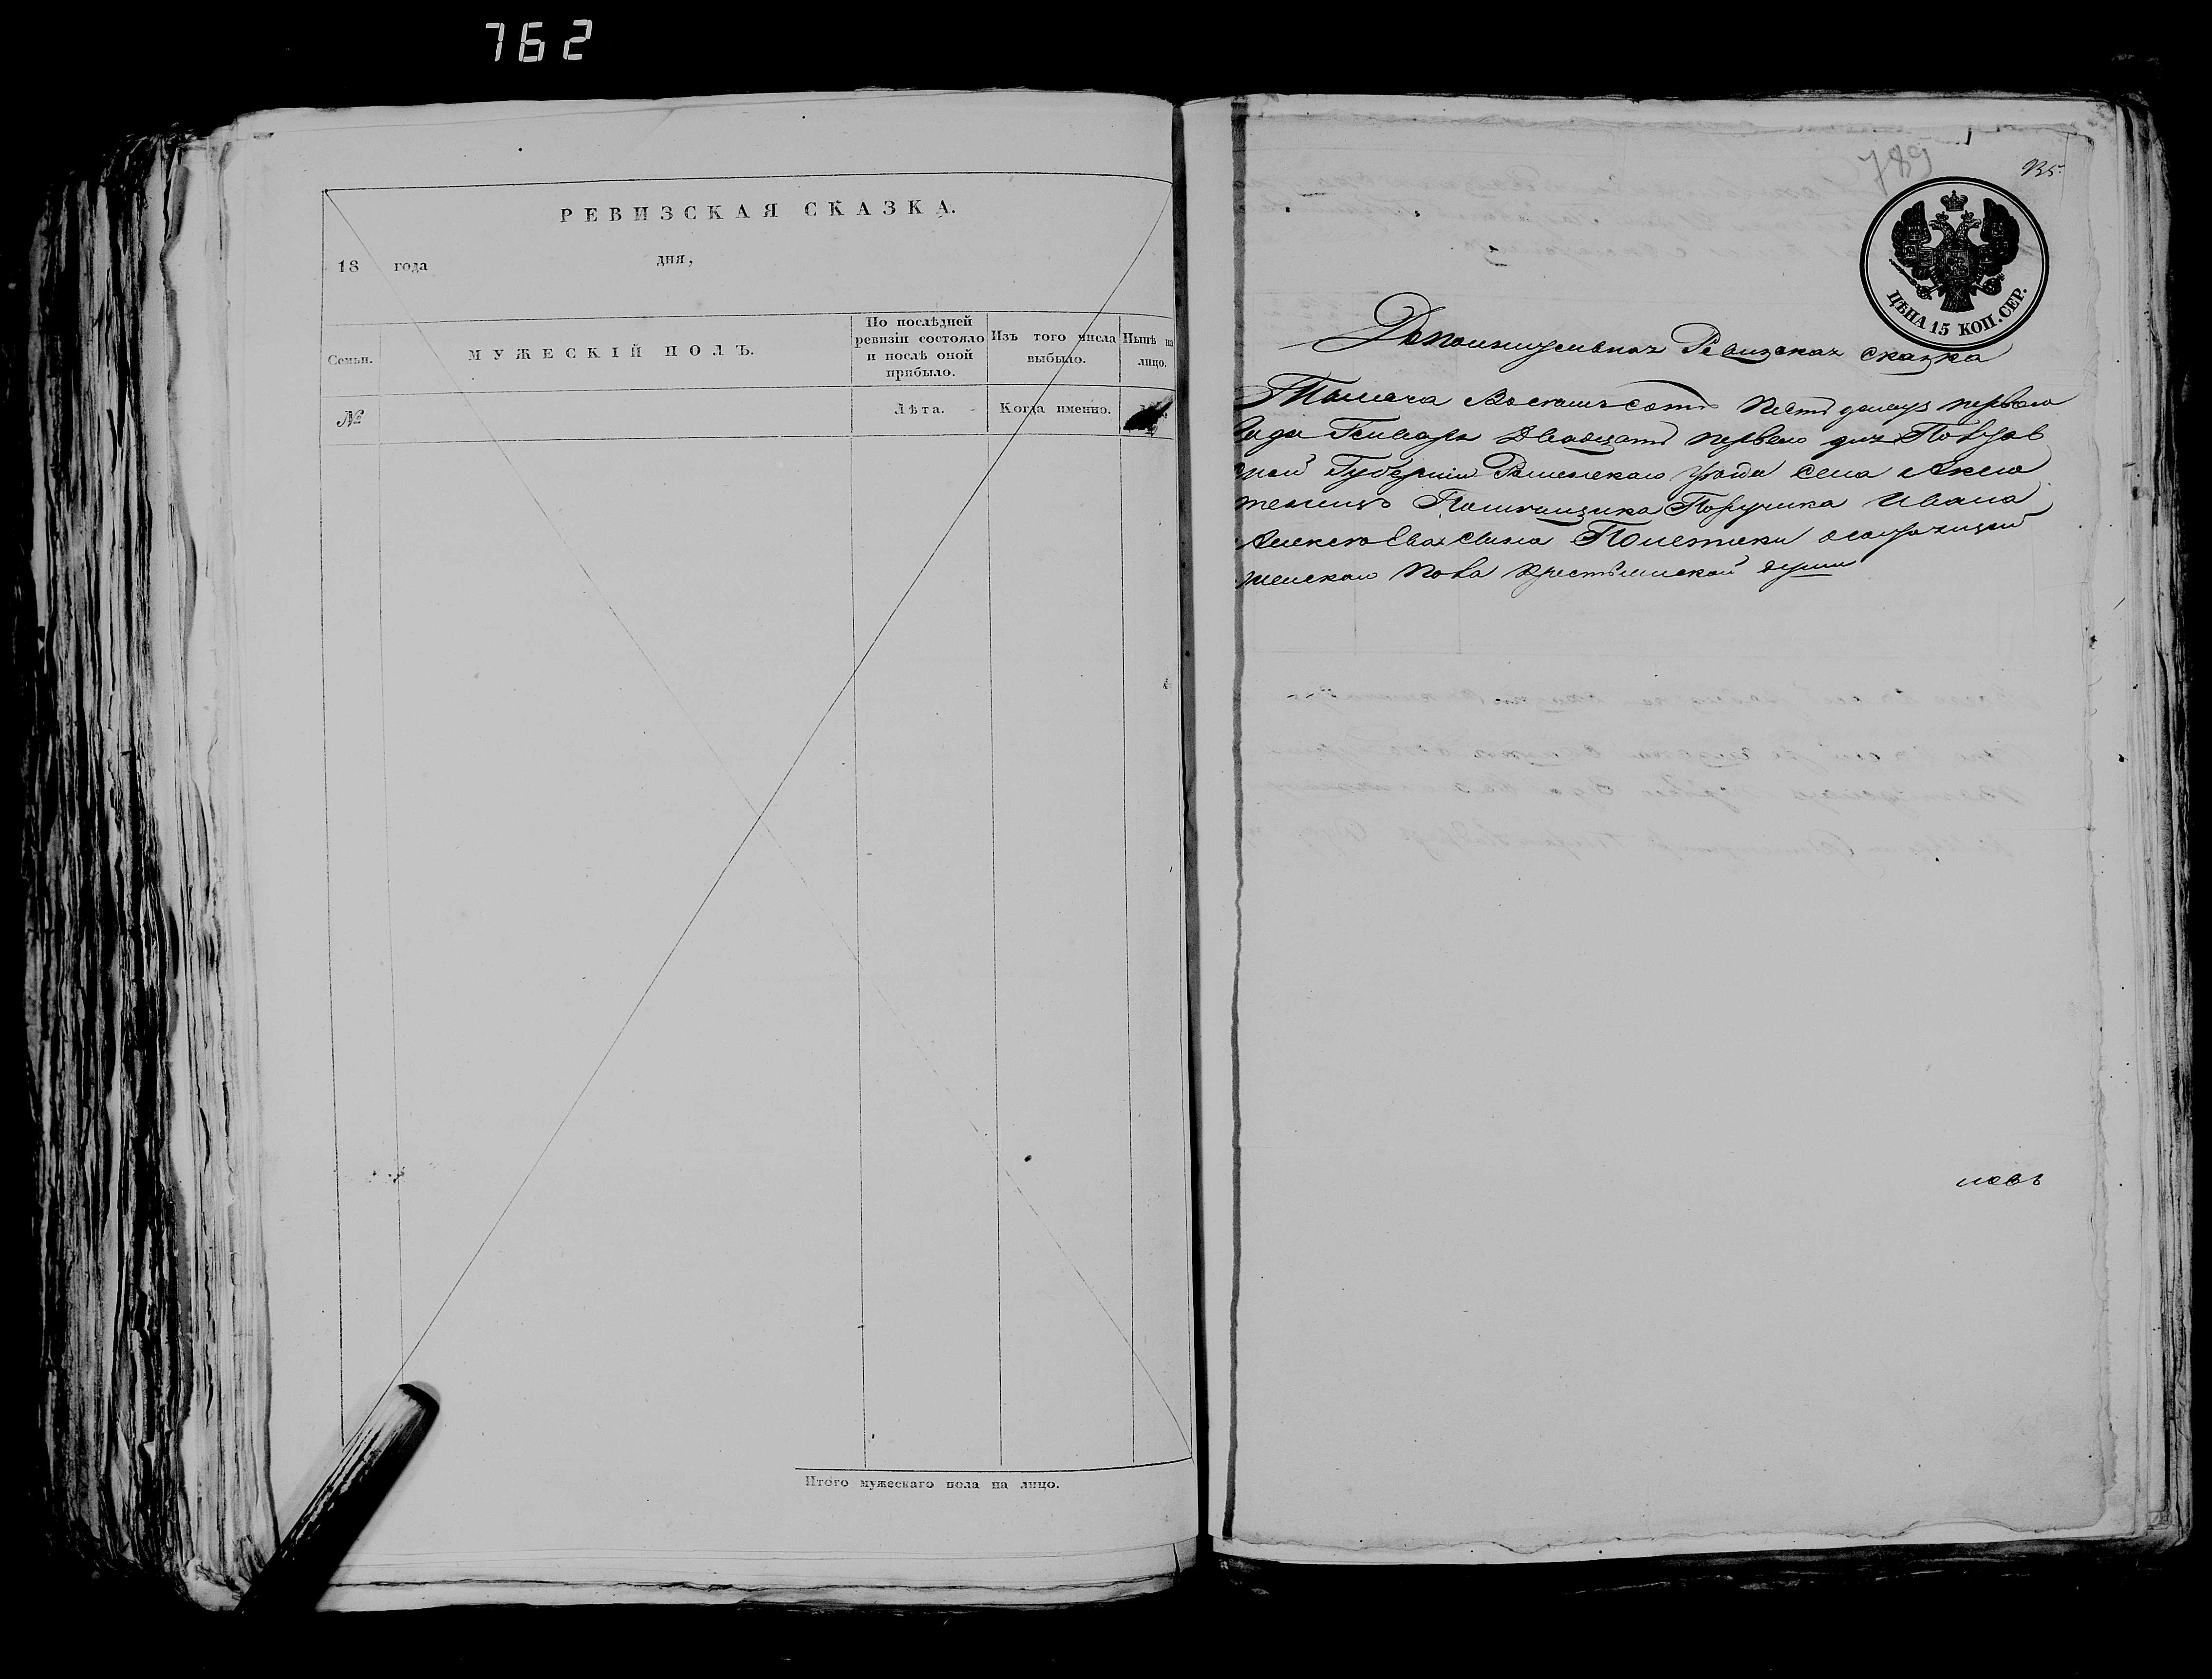 762
РЕВИЗСКАЯ СКАЗКА.
18 года дня,
Семьи.
МУЖЕСКІЙ ПОЛЪ.
По послѣдней
ревизіи состояло
и послѣ оной
прибыло.
Изъ того числа
выбыло.
Нынѣ на
лицо.
№
Лѣта.
Когда именно.
Итого мужескаго пола на лицо.
789
ЦѢНА 15 КОП. СЕР.
Дополнительная Ревизская сказка
Тысяча Восемьсотъ пятьдесятъ перваго
года Генваря Двадцать перваго дня
Губерніи Роменскаго уѣзда села Аксю
Помѣщика Поручика Ивана
Алексѣева сына Полетики
женскаго пола крестьянской души